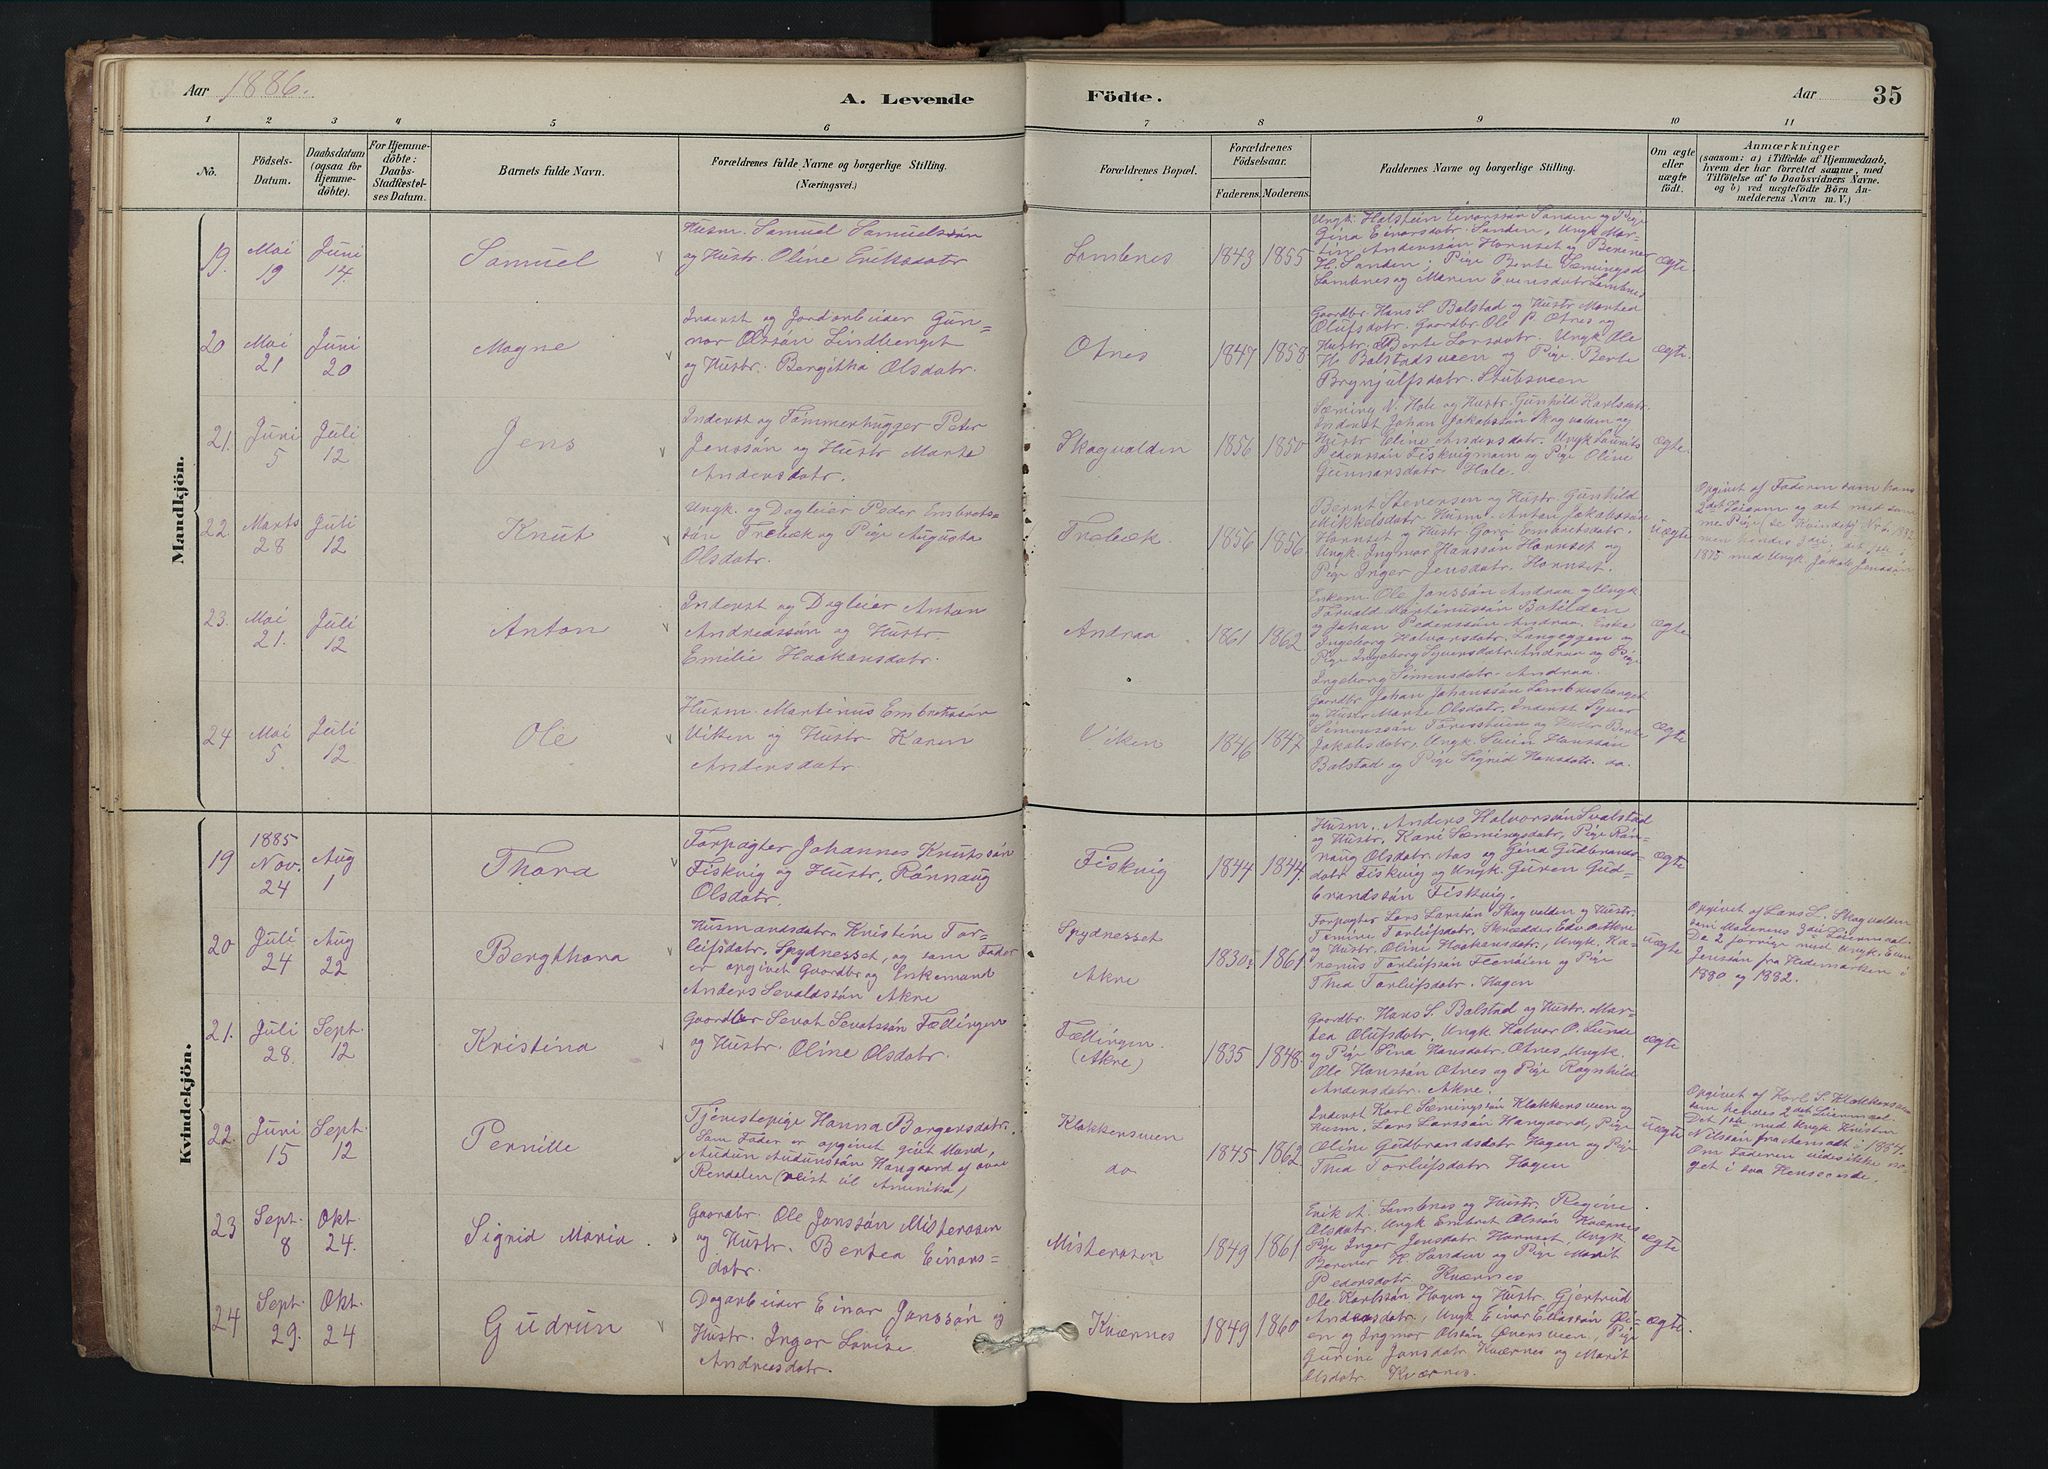 Aar 1886.
A. Levende
Födte.
Aar
35
1 2 3 4 5 6 7 8 9 10 11
No.
Födsels-
Datum.
Daabsdatum
(ogsaa for
Hjemme-
döbte).
For Hjemme-
döbte:
Daabs-
Stadfæstel-
ses Datum.
Barnets fulde Navn.
Forældrenes fulde Navne og borgerlige Stilling.
(Næringsvei.)
Forældrenes Bopæl.
Forældrenes
Födselsaar.
Faderens.
Moderens.
Faddernes Navne og borgerlige Stilling.
Om ægte
eller
uægte
födt.
Anmærkninger
(saasom: a) i Tilfælde af Hjemmedaab,
hvem der har forrettet samme, med
Tilföielse af to Daabsvidners Navne.
og b) ved uægtefödte Börn An-
melderens Navn m. V.)
Mandkjön.
19. Mai 19 Juni 14. Samuel
Husm. Samuel Samuelssön
og Hustr. Oline Eriksdatr
Lombnes 1843 1855
Ungk. Halstein Einarssön Sanden og Pige
Gina Einarsdatr. Sanden, Ungk. Mar-
tin Anderssön Hornset og Berener
H. Sanden; Pige Berte Sæmingsd
Lombnes og Maren Evensdatr Lombnes
ægte
20 Mai 21 Juni 20 Magne
Inderst og Jordarbeider Gun-
nar Olssön Lindberget
og Hustr. Bergitha Olsdatr.
Otnes 1847 1858
Gaardbr. Hans S. Balstad og Hustr. Martea
Olufsdatr. Gaardbr. Ole P. Otnes og
Hustr. Berte Larsdatr. Ungk. Ole
H. Balstadsveen og Pige Berte
Brynjulfsdatr. Stubsveen
ægte
21. Juni 5 Juli 12 Jens
Inderst og Tömmerhugger Peter
Jenssön og Hustr. Marte
Andersdatr.
Skogvolden 1856 1850
Sæming V. Hole og Hustr. Gunhild Karlsdatr.
Inderst Johan Jakobssön Skogvolden og
Hustr. Eline Andersdatr. Ungk. Laurits
Pederssön Fiskvigmoen og Pige Oline
Gunnarsdatr. Hole.
ægte.
22. Marts 28 Juli 12 Knut
Ungk. og Dagleier Peder Embrets-
sön Trebæk og Pige Augusta
Olsdatr.
Trebæk. 1856 1856.
Bernt Steversen og Hustr. Gunhild
Mikkelsdatr. Husm. Anton Jakobssön
Hornset og Hustr. Goro Embretsdatr.
Ungk. Ingmar Hanssön Hornset og
Pige Inger Jensdatr. Hornset.
uægte
Opgivet af Faderen som hans
2det Leierm. og det med sam-
me Pige (se Kvindekj. Nr 6, 1882
men hendes 3die, det 1ste i
1875 med Ungk. Jakob Jonssön
23. Mai 21. Juli 12 Anton
Inderst og Dagleier Anton
Andreassön og Hustr.
Emilie Haakonsdatr.
Andraa 1861 1862
Enkem. Ole Jonssön Andraa og Ungk.
Torvald Martinussön Batilden
og Johan Pederssön Andraa. Enke
Ingeborg Halvorsdatr. Langeggen og
Pige Ingeborg Syversdatr. Andraa og Pige
Ingeborg Simensdatr. Andraa.
ægte
24 Mai 5 Juli 12 Ole
Husm. Martinus Embretssön
Viken og Hustr. Karen
Andersdatr.
Viken 1846 1847
Gaardbr. Johan Johanssön Lombnesberget
og Hustr. Marte Olsdatr, Inderst Syver
Simenssön Toresstuen og Hustr. Berte
Jakobsdatr, Ungk. Svein Hanssön
Balstad og Pige Sigrid Hansdatr. do.
ægte
Kvindekjön.
19 1885 Nov. 24 Aug 1 Thora
Forpagter Johannes Knutssön
Fiskvig og Hustr. Rønnaug
Olsdatr.
Fiskvig 1844 1844.
Husm. Anders Halvorssön Svalstad
og Hustr. Kari Sæmingsdatr, Pige Rön-
naug Olsdatr. Aas og Gina Gudbrands-
datr Fiskvig og Ungk. Guren Gud-
brandssön Fiskvig.
ægte
20 Juli 24 Aug 22 Bergthora
Husmandsdatr. Kristine Tor-
leifsdatr. Spydnesset, og som Fader
er opgivet Gaardbr og Enkemand
Anders Sevaldssön Akre
Spydnesset
Akre
1830. 1861
Forpagter Lars Larssön Skogvolden og Hustr.
Temine Torleifsdatr. Skrædder Edv. Ottnes
og Hustr. Oline Haakonsdatr, Ungk. Ka-
renus Torleifssön Flenöien og Pige
Thea Torleifsdatr. Hagen
uægte
Opgivet af Lars L. Skogvolden
som Moderens 3die Leiermaal.
De 2 forrige med Ungk. Even
Jenssön fra Hedemarken i
1880 og 1882.
21. Juli 28. Sept. 12 Kristina
Gaardbr Sevat Sevatssön Fællingen
og Hustr. Oline Olsdatr.
Fællingen.
(Akre)
1835 1848.
Gaardbr. Hans S. Balstad og Hustr. Mar-
tea Olufsdatr. Ungk. Halvor P. Lunde
og Pige Sina Hansdatr. Otnes, Ungk.
Ole Hanssön Otnes og Pige Ragnhild
Andersdatr. Akre.
ægte
22. Juni 15 Sept. 12 Pernille
Tjenestepige Hanna Borgersdatr.
Som Fader er opgivet givt Mand,
Audun Audunssön Hangaard af övre
Rendalen (reist til Amerika)
Klokkersveen
do
1845 1862
Inderst Karl Sæmingssön Klokkersveen og
Husm. Lars Larssön Hangaard, Pige
Oline Gudbrandsdatr Hagen og Pige
Thea Torleifsdatr. Hagen
uægte
Opgivet af Karl S. Klokkersveen
som hendes 2det Leiermaal.
Det 1ste med Ungk. Kristen
Nilssön fra Aamodt i 1884.
Om Faderen vides ikke no-
get i saa Henseende.
23 Sept. 8 Okt. 24. Sigrid Maria
Gaardbr. Ole Jonssön Misterosen
og Hustr. Bertea Einars-
datr.
Misterosen 1849 1861
Erik A. Lombnes og Hustr. Regine
Olsdatr. Ungk Embret Olssön Kværnes
Pige Inger Jensdatr Hornset, Ungk.
Berener H. Sanden og Pige Marit
Pedersdatr. Kværnes
ægte
24 Sept. 29. Okt. 24 Gudrun
Dagarbeider Einar Jonssön og
Hustr. Inger Lovise
Andreasdatr.
Kværnes 1849 1860
Ole Karlssön Hagen og Hustr. Gjertrud
Andersdatr, Ungk Einar Eliassön Öi-
en og Ingmar Olssön Översveen, Pige
Gurine Jonsdatr. Kværnes og Marit
Olsdatr. Kværnes.
ægte.